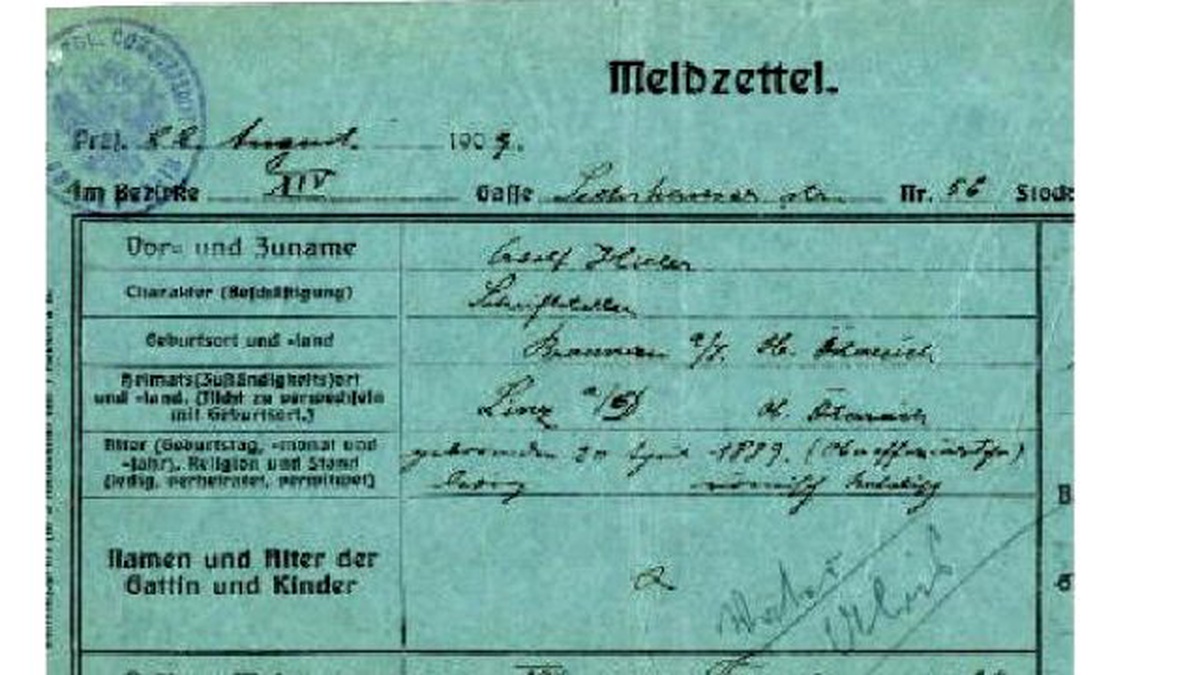 Meldzettel.
Präs. 22. August 1909.
Im Bezirke XIV Gasse Sechshauser str. Nr. 56 Stock
Vor= und Zuname Adolf Hitler
Charakter (Beschäftigung) Schriftsteller
Geburtsort und =land Braunau a/I. Ob. Österreich
Heimats(Zuständigkeits)ort
und =land. (Nicht zu verwechseln
mit Geburtsort.)
Linz a/D Ob. Österreich
Alter (Geburtstag, =monat und
=jahr), Religion und Stand
(ledig, verheiratet, verwitwet)
geboren den 20 April 1889.
ledig römisch katholisch
Namen und Alter der
Gattin und Kinder